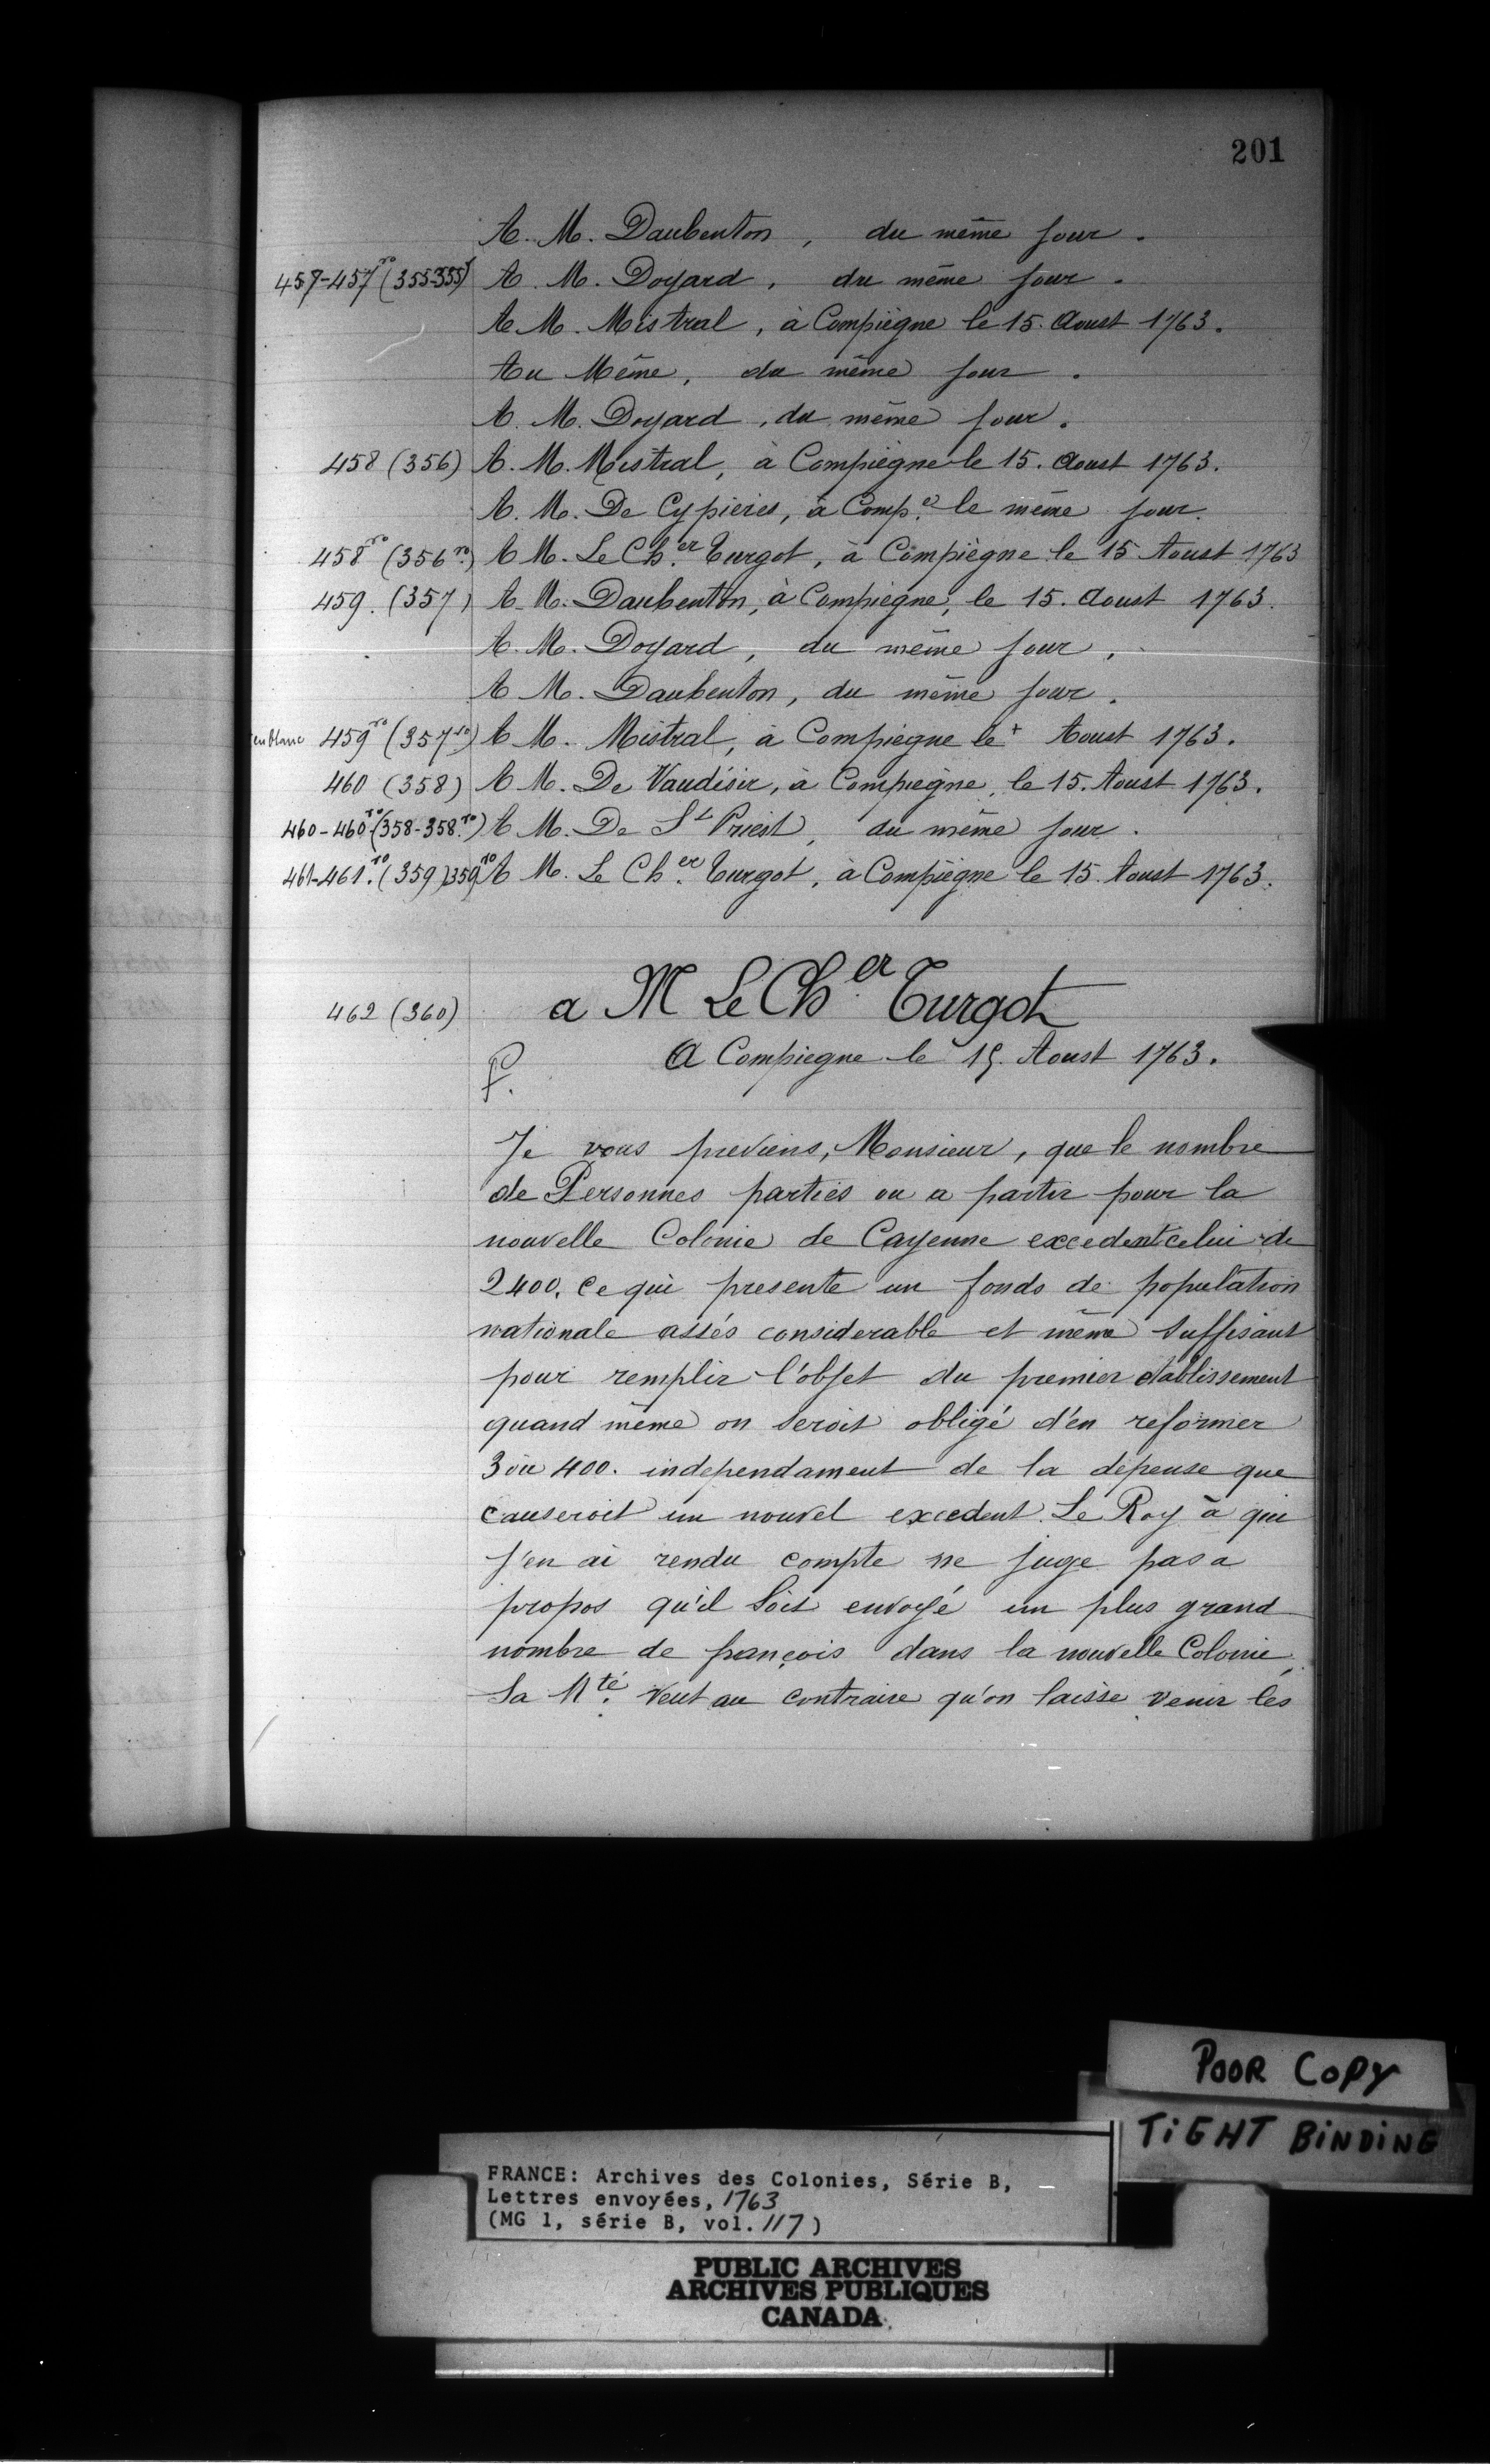 201
A. M. Daubenton, du même jour.
457-457 vo (355-355) A. M. Doyard, du même jour.
A M. Mistral, à Compiègne le 15. Aoust 1763.
Au Même, du même jour.
A. M. Doyard, du même jour.
458 (356) A. M. Mistral, à Compiègne le 15. Aoust 1763.
A. M. De Cypieres, à Comp.e le même jour.
458 vo (356 vo.) A M. Le Ch.er Turgot, à Compiègne le 15 Aoust 1763
459. (357) A. M. Daubenton, à Compiegne, le 15. Aoust 1763.
A. M. Doyard, du même jour.
A M. Daubenton, du même jour.
en blanc 459 vo (357 vo) A M. Mistral, à Compiègne le + Aoust 1763.
460 (358) A M. De Vaudésir, à Compiègne, le 15. Aoust 1763.
460-460 vo (358-358. vo) A M. De St Priest, du même jour.
461-461. vo (359) 359 vo A M. Le Ch.er Turgot, à Compiègne le 15 Aoust 1763.
462 (360) a M Le Ch.er Turgot
A Compiegne le 15. Aoust 1763.
P.
Je vous previens, Monsieur, que le nombre
de Personnes parties ou a partir pour la
nouvelle Colonie de Cayenne excedent celui de
2400. Ce qui presente un fonds de population
nationale assés considerable et même suffisant
pour remplir l'objet du premier etablissement
quand même on seroit obligé d'en reformer
3 ou 400. independament de la depense que
causeroit un nouvel excedent. Le Roy à qui
j'en ai rendu compte ne juge pas a
propos qu'il soit envoyé un plus grand
nombre de françois dans la nouvelle Colonie,
Sa M.té Veut au contraire qu'on laisse venir les
POOR COPY
TIGHT BINDING
FRANCE: Archives des Colonies, Série B,
Lettres envoyées, 1763
(MG 1, série B, vol. 117)
PUBLIC ARCHIVES
ARCHIVES PUBLIQUES
CANADA